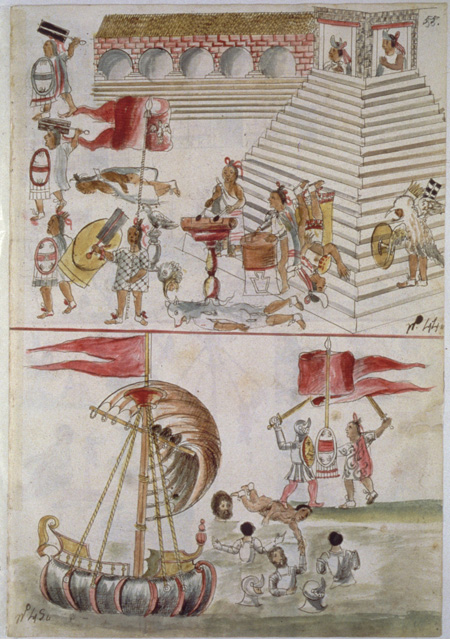 nº 44.
nº 45.